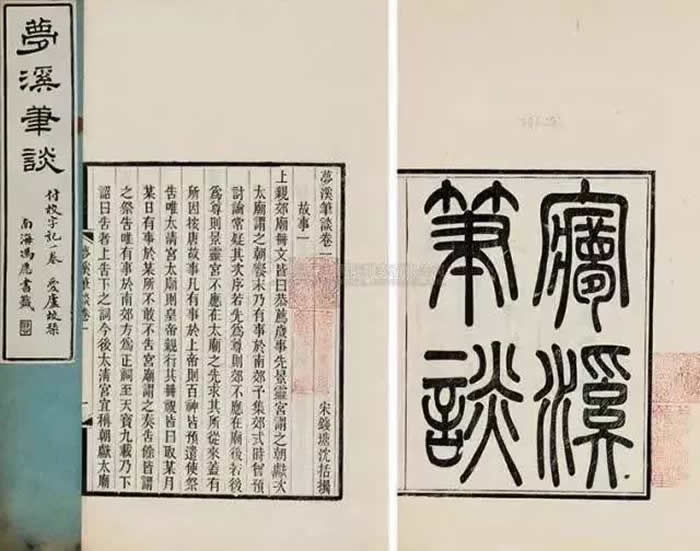 夢溪筆談
付校字記一卷 愛廬校槧
南海馮應書籤
夢溪筆談卷一
故事一
宋錢塘沈括撰
上親郊廟冊文皆曰恭薦歲事先景靈宮謂之朝獻次
太廟謂之朝饗末乃有事於南郊予集郊式時曾預
討論常疑其次序若先為尊則郊不應在廟後若後
為尊則景靈宮不應在太廟之先求其所從來蓋有
所因按唐故事凡有事於上帝則百神皆預遣使祭
告唯太清宮太廟則皇帝親行其冊祝皆曰取某月
某日有事於某所不敢不告宮廟謂之奏告餘皆謂
之祭告唯有事於南郊方為正祠至天寶九載乃下
詔曰告者上告下之詞今後太清宮宜稱朝獻太廟
夢溪筆談卷一
一
夢溪
筆談